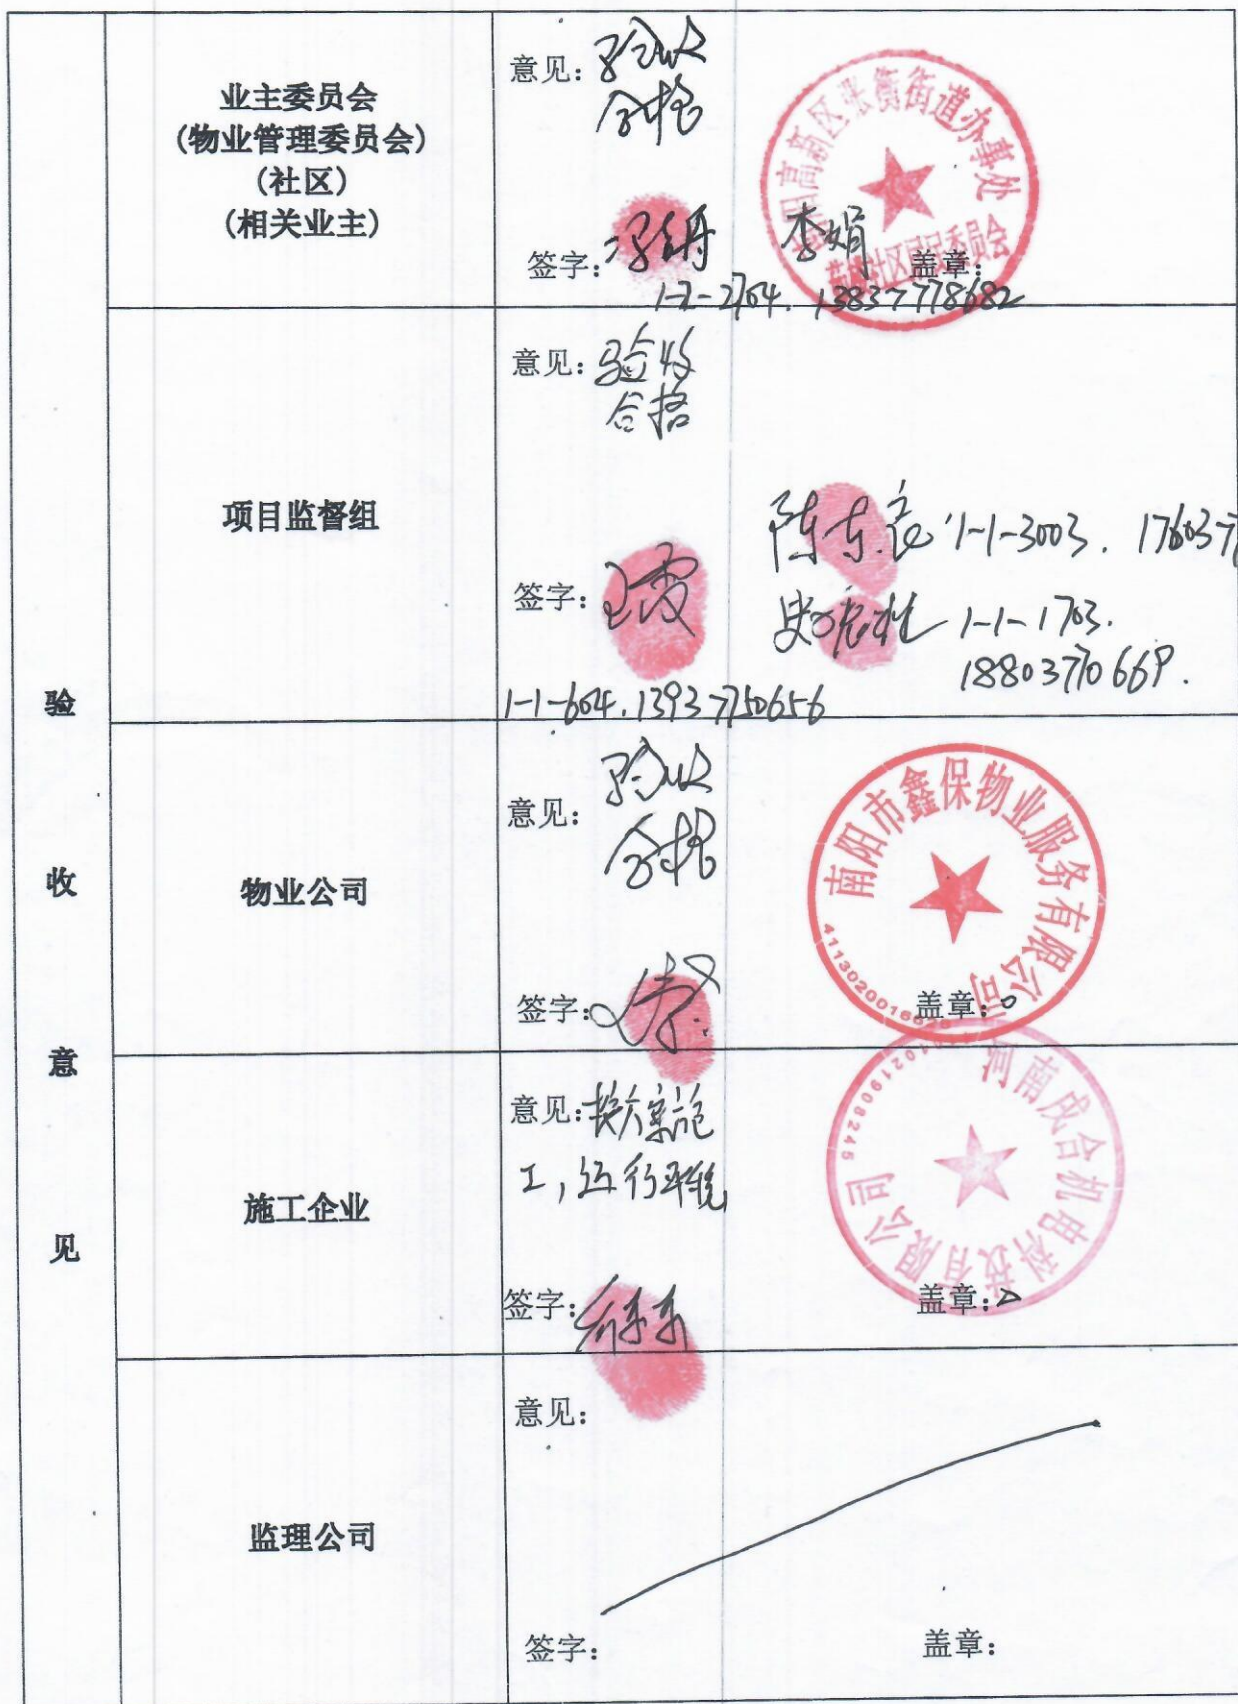 验收意见
业主委员会
(物业管理委员会)
(社区)
(相关业主)
意见：验收
合格
签字：
李娟
盖章：
1-2-2704. 13837778682
高新区张衡街道办事处
社区居民委员会
项目监督组
意见：验收
合格
陈东良 1-1-3003. 176037
签字：王霞
1-1-1703.
18803770669.
1-1-604. 13937750656
物业公司
意见：验收
合格
签字：
盖章：
南阳市鑫保物业服务有限公司
施工企业
意见：按方案施
工，运行平稳
签字：
盖章：
河南成合机电科技有限公司
监理公司
意见：
签字：
盖章：